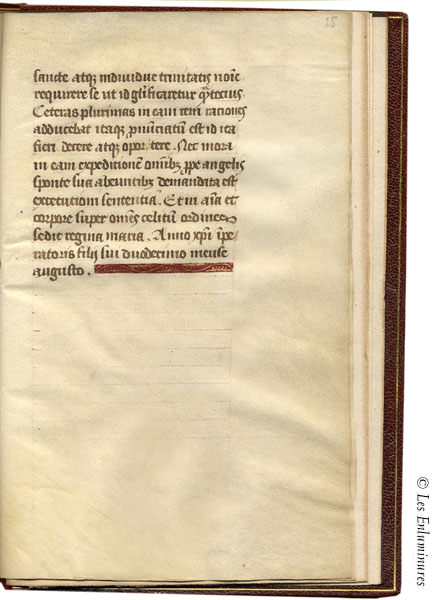 25
sancte atq; individue trinitatis no͞ie
requirere se ut id gl͞ificaretur
Ceteras plurimas in eam rem rationes
adducebat itaq; p͞nūciatū est id ita
fieri decere atq; opor/tere. Nec mora
in eam expeditionem om͞ibꝫ angelis
sponte sua abeuntibꝫ demandata est
executioni sententia. Et in a͞ia et
corpore super om͞es celitū ordines
sedit regina maria. Anno xp͞i ī͞pe
ratoris filij sui duodecimo mense
augusto.
© Les Enluminures